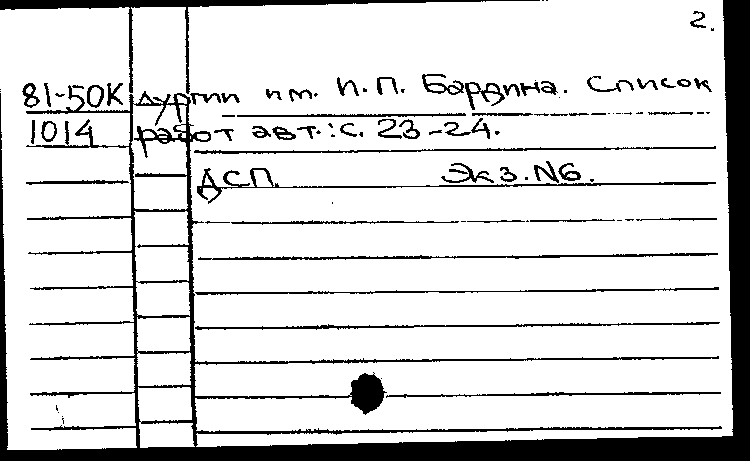 2.
81-50К лургии им. И.П. Бардина. Список
1014 работ авт.: с. 23-24.
ДСП. Экз. №6.